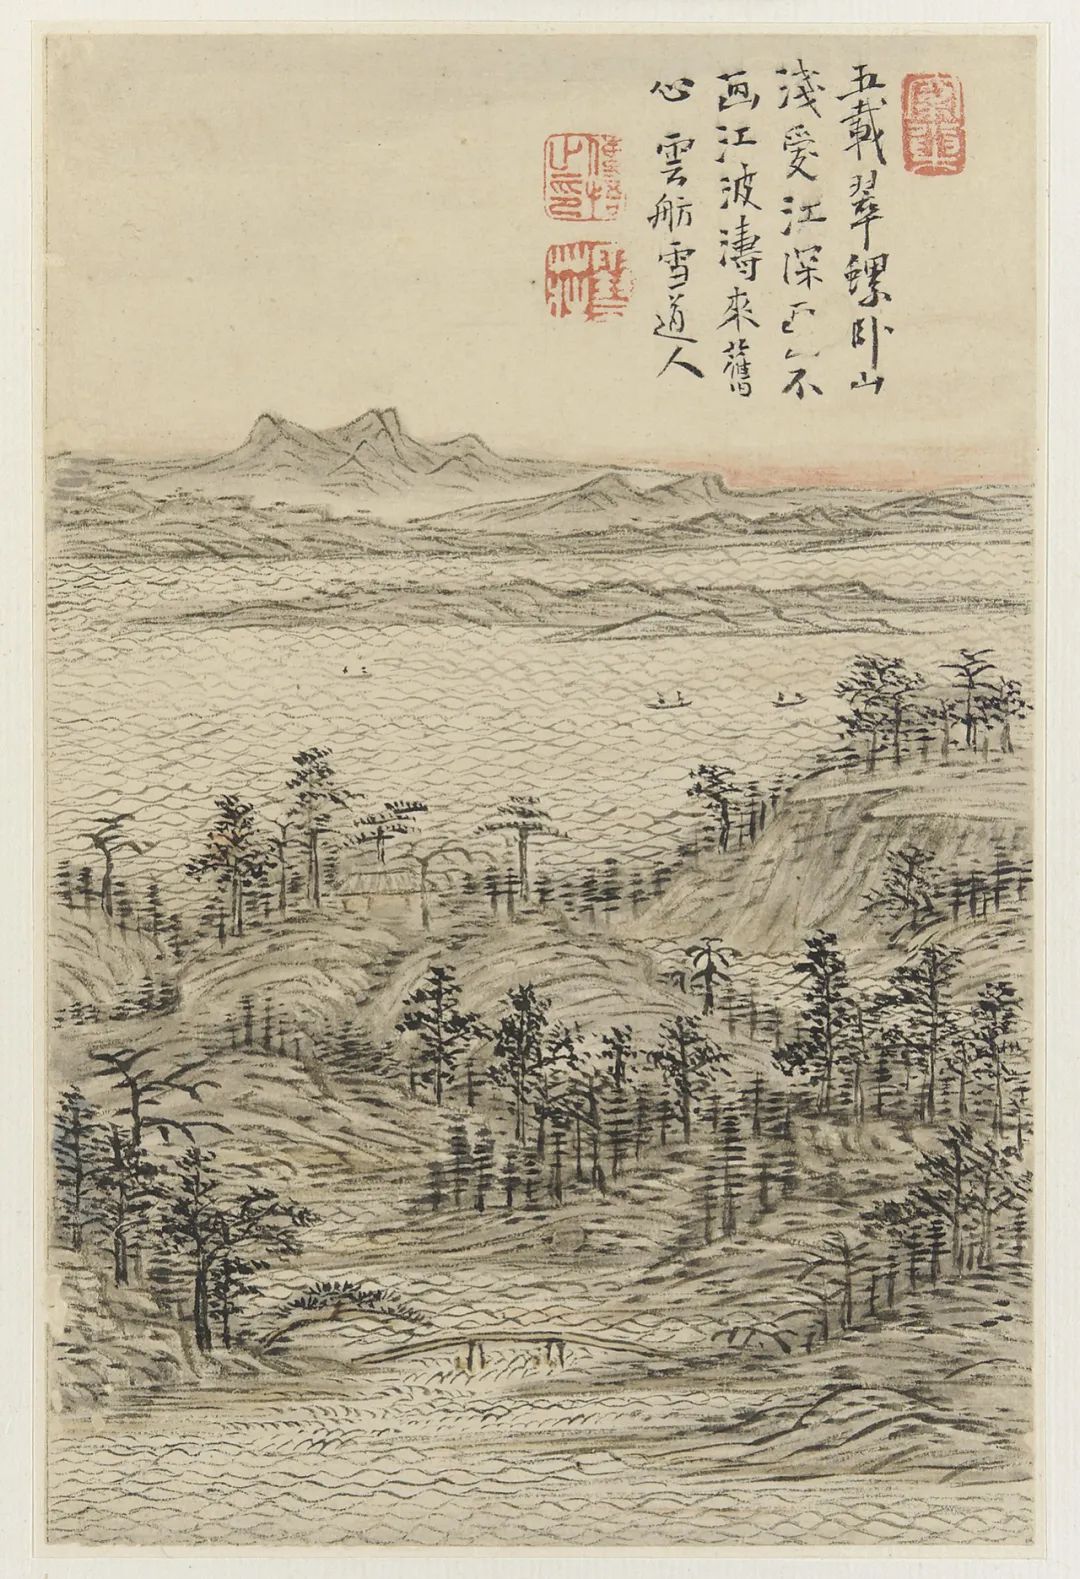 五載翠螺卧山
淺愛江深不
画江波濤來舊
心 雲舫雪道人